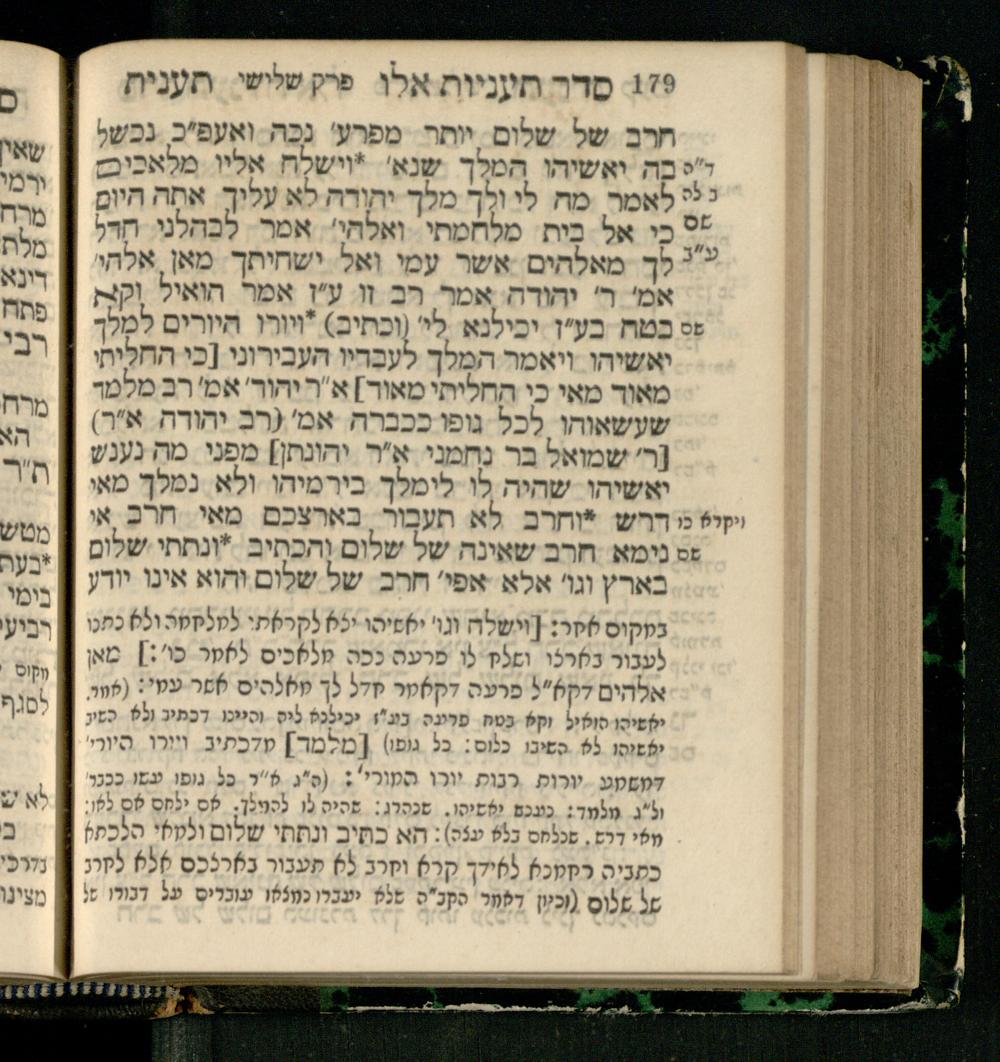 179 סדר תעניות אלו פרק שלישי תענית
חרב של שלום יותר מפרע׳ נכה ואעפ״כ נכשל
ד״ה בה יאשיהו המלך שנא׳ *וישלח אליו מלאכים
ב לה לאמר מה לי ולך מלך יהודה לא עליך אתה היום
שם כי אל בית מלחמתי ואלהי׳ אמר לבהלני חדל
ע״ב לך מאלהים אשר עמי ואל ישחיתך מאן אלהי׳
אמ׳ ר׳ יהודה אמר רב זו ע״ז אמר הואיל וקא
שם בטח בע״ז יכילנא לי׳ (וכתיב) *ויורו היורים למלך
יאשיהו ויאמר המלך לעבדיו העבירוני [כי החליתי
מאוד מאי כי החליתי מאוד] א״ר יהוד׳ אמ׳ רב מלמד
שעשאוהו לכל גופו ככברה אמ׳ (רב יהודה א״ר)
[ר׳ שמואל בר נחמני א״ר יהונתן] מפני מה נענש
יאשיהו שהיה לו לימלך בירמיהו ולא נמלך מאי
ויקרא כו דרש *וחרב לא תעבור בארצכם מאי חרב אי
שם נימא חרב שאינה של שלום והכתיב *ונתתי שלום
בארץ וגו׳ אלא אפי׳ חרב של שלום והוא אינו יודע
במקום אחר: [וישלח וגו׳ יאשיהו יצא לקראתי למלחמה ולא נתנו
לעבור בארצו ושלח לו פרעה נכה מלאכים לאמר כו׳:] מאן
אלהים דקא״ל פרעה דקאמר חדל לך מאלהים אשר עמי: (אמר.
יאשיהו הואיל וקא בטח פרעה בע״ז יכילנא ליה והיינו דכתיב ולא השיב
יאשיהו לא השיבו כלום: כל גופו) [מלמד] מדכתיב ויורו היורי׳
דמשמע יורות רבות יורו המורי׳: (ה״ג א״ר כל גופו עשו ככבר׳
ול״ג מלמד: נענש יאשיהו. שנהרג: שהיה לו להמלך. אם ילחם אם לאו:
מאי דרש. שנלחם בלא עצה): הא כתיב ונתתי שלום ולמאי הלכתא
כתביה רחמנא לאידך קרא וחרב לא תעבור בארצכם אלא לחרב
של שלום (וכיון דאמר הקב״ה שלא יעברו כמצאו עוברים על דבורו של